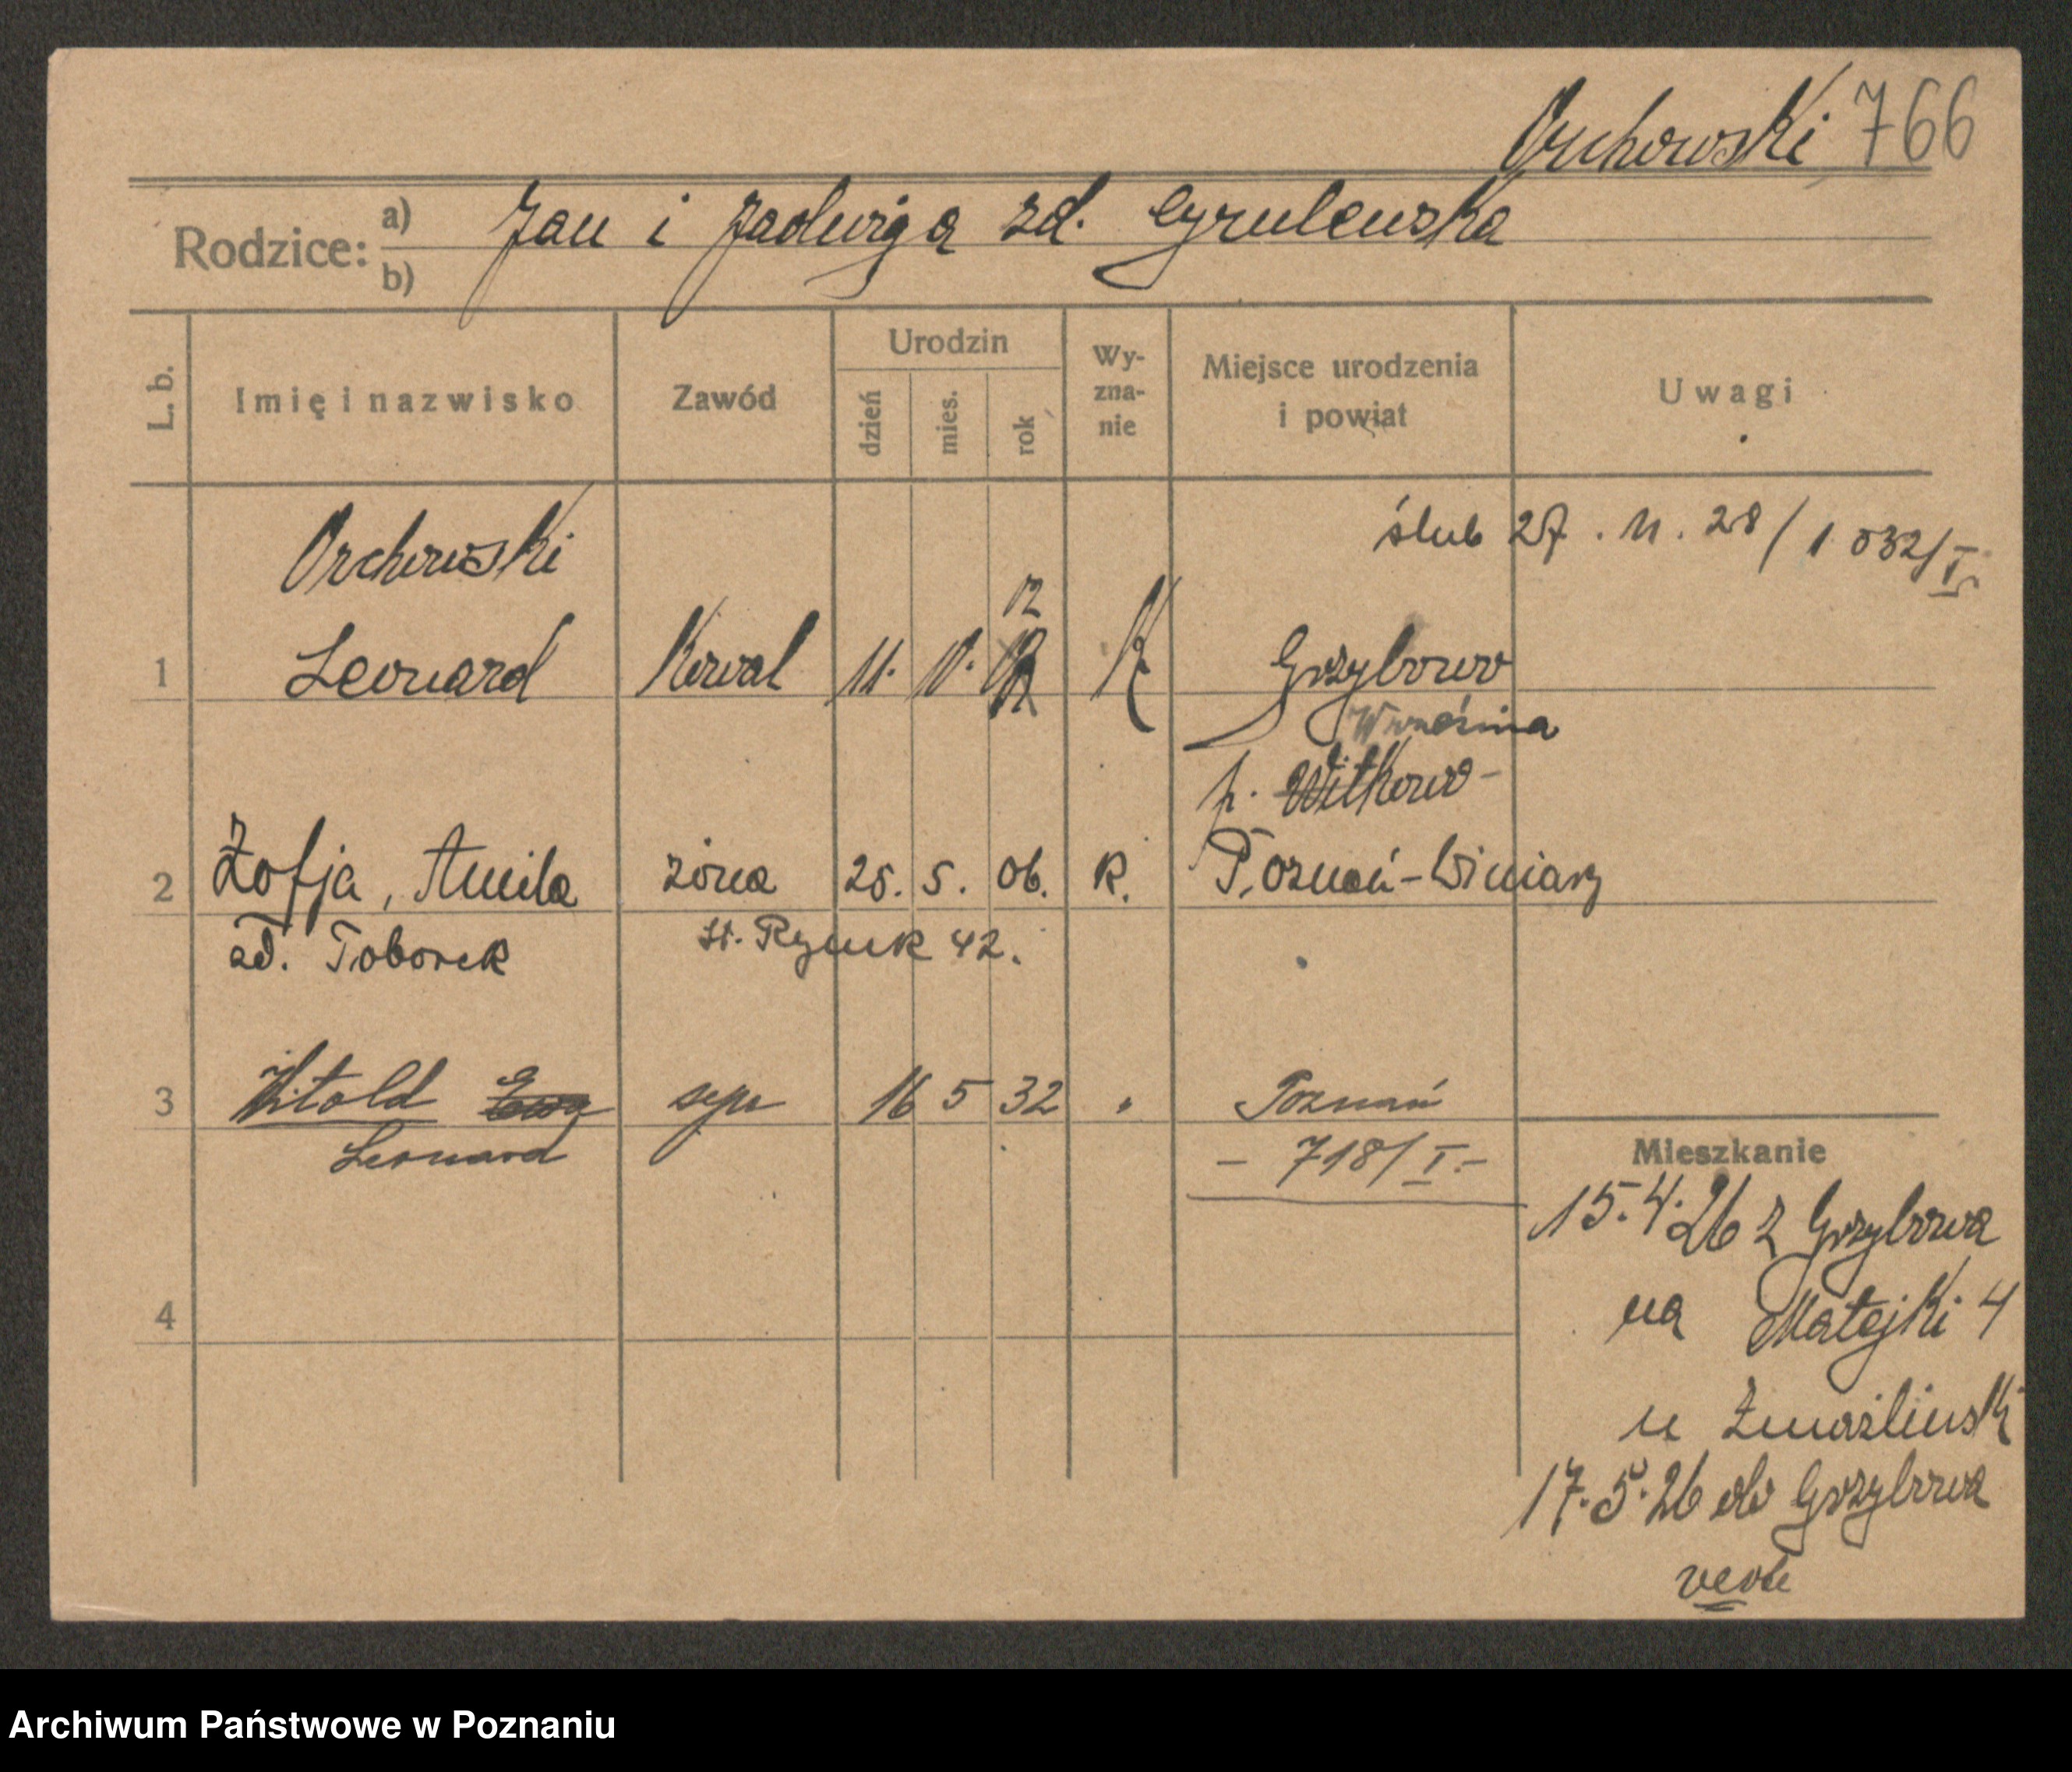 Orchowski 766
Rodzice: a) Jan i Jadwiga zd. Cyrulewska
b)
L. b. Imię i nazwisko Zawód Urodzin dzień mies. rok Wy-zna-nie Miejsce urodzenia i powiat Uwagi
ślub 27. 11. 28 / 1 032/I.
Orchowski
12
1 Leonard Kowal 11. 10. K Grzybowo
Września
p. Witkowo-
2 Zofja, Aniela żona 25. 5. 06. K. Poznań-Winiary
zd. Toborek st. Rynek 42.
3 Witold Ewa syn 16 5 32 " Poznań
Leonard - 718/I.-
Mieszkanie
15.4.26 z Grzybowa
4 na Matejki 4
u
17.5.26 do Grzybowa
verte
Archiwum Państwowe w Poznaniu